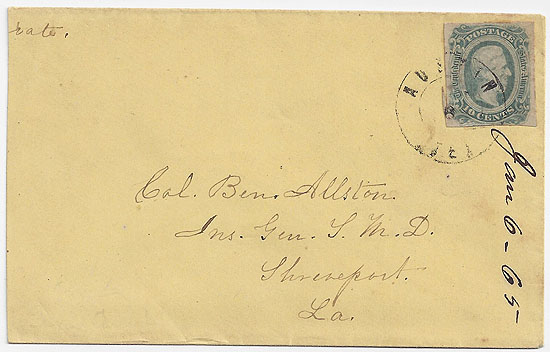 vate.
POSTAGE
The Confederate States of America
10 CENTS
AUSTIN
TEX
Jan 6 - 65
Col. Ben. Allston.
Ins. Gen. T. M. D.
Shreveport.
La.